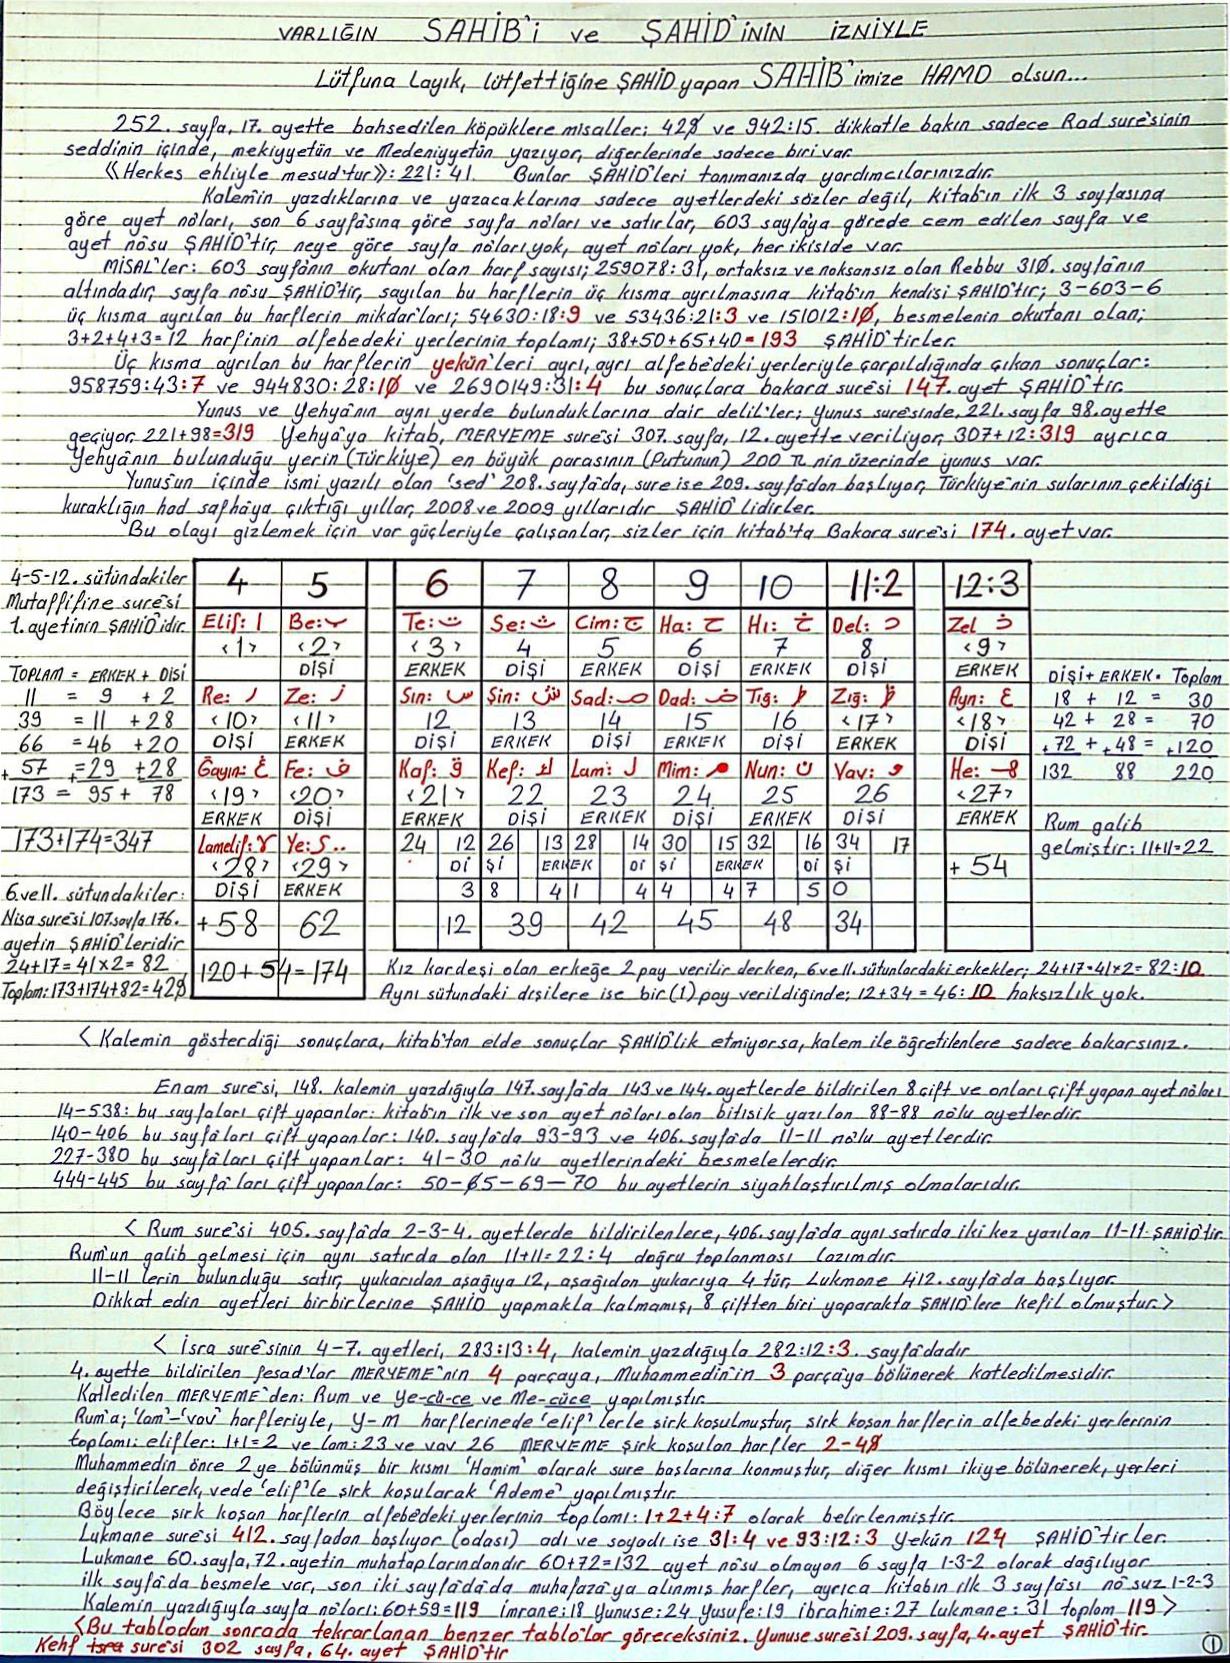 VARLIĞIN SAHİB'i ve ŞAHİD'İNİN İZNİYLE
Lütfuna Layık, lütfettiğine ŞAHİD yapan SAHİB'imize HAMD olsun...
252. sayfa, 17. ayette bahsedilen köpüklere misaller; 428 ve 942:15. dikkatle bakın sadece Rad suresinin
seddinin içinde, mekiyyetün ve Medeniyyetün yazıyor, diğerlerinde sadece biri var.
《Herkes ehliyle mesud'tur》: 221: 41. Bunlar ŞAHİD'leri tanımanızda yardımcılarınızdır.
Kalem'in yazdıklarına ve yazacaklarına sadece ayetlerdeki sözler değil, kitab'ın ilk 3 sayfasına
göre ayet nô'ları, son 6 sayfâsına göre sayfa nô'ları ve satırlar, 603 sayfa'ya görede cem edilen sayfa ve
ayet nô'su ŞAHİD'tir, neye göre sayfa nô'ları yok, ayet nô'ları yok, her ikiside var.
MİSAL'ler: 603 sayfânın okutanı olan harf sayısı; 259078:31, ortaksız ve noksansız olan Rebbu 310. sayfâ'nın
altındadır, sayfa nôsu ŞAHİD'tir, sayılan bu harflerin üç kısma ayrılmasına kitab'ın kendisi ŞAHİD'tir; 3-603-6
üç kısma ayrılan bu harflerin mikdar'ları; 54630:18:9 ve 53436:21:3 ve 151012:10, besmelenin okutanı olan;
3+2+4+3=12 harfinin alfebedeki yerlerinin toplamı; 38+50+65+40=193 ŞAHİD'tirler.
Üç kısma ayrılan bu harflerin yekün'leri ayrı, ayrı alfebe'deki yerleriyle çarpıldığında çıkan sonuçlar:
958759:43:7 ve 944830:28:10 ve 2690149:31:4 bu sonuçlara bakara suresi 147. ayet ŞAHİD'tir.
Yunus ve Yehyâ'nın aynı yerde bulunduklarına dair delil'ler; Yunus suresinde, 221. sayfa 98. ayette
geçiyor, 221+98=319 Yehyâ'ya kitab, MERYEME suresi 307. sayfa, 12. ayette veriliyor, 307+12:319 ayrıca
Yehyâ'nın bulunduğu yerin (Türkiye) en büyük parasının (Putunun) 200 TL nin üzerinde yunus var.
Yunus'un içinde ismi yazılı olan 'sed' 208. sayfa'da, sure ise 209. sayfa'dan başlıyor, Türkiye'nin sularının çekildiği
kuraklığın had safha'ya çıktığı yıllar, 2008 ve 2009 yıllarıdır ŞAHİD'lidirler.
Bu olayı gizlemek için var güçleriyle çalışanlar, sizler için kitab'ta Bakara suresi 174. ayet var.
4-5-12. sütündakiler
Mutaffifine suresi
1. ayetinin ŞAHİD'idir.
4 5 6 7 8 9 10 11:2 12:3
Elif: ا Be: ب Te: ت Se: ث Cim: ج Ha: ح Hı: خ Del: د Zel ذ
<1> <2> <3> 4 5 6 7 8 <9>
DİŞİ ERKEK DİŞİ ERKEK DİŞİ ERKEK DİŞİ ERKEK
TOPLAM = ERKEK + DİŞİ
11 = 9 + 2
39 = 11 + 28
66 = 46 + 20
+57 +=29 +28
173 = 95 + 78
Re: ر Ze: ز Sın: س Şın: ش Sad: ص Dad: ض Tığ: ط Zığ: ظ Ayn: ع
<10> <11> 12 13 14 15 16 <17> <18>
DİŞİ ERKEK DİŞİ ERKEK DİŞİ ERKEK DİŞİ ERKEK DİŞİ
DİŞİ + ERKEK = Toplam
18 + 12 = 30
42 + 28 = 70
+72 + +48 = +120
132 88 220
Ğayın: غ Fe: ف Kaf: ق Kef: ك Lam: ل Mim: م Nun: ن Vav: و He: ه
<19> <20> <21> 22 23 24 25 26 <27>
ERKEK DİŞİ ERKEK DİŞİ ERKEK DİŞİ ERKEK DİŞİ ERKEK
173+174=347
Lamelif: لا Ye: ى..
<28> <29>
DİŞİ ERKEK
24 12 26 13 28 14 30 15 32 16 34 17
Dİ Şİ ERKEK Dİ Şİ ERKEK Dİ Şİ
3 8 4 1 4 4 4 7 5 0
+54
Rum galib
gelmiştir: 11+11=22
6. ve 11. sütundakiler:
Nisa suresi 107. sayfa 176.
ayetin ŞAHİD'leridir
24+17=41x2=82
Toplam: 173+174+82=429
+58 62 12 39 42 45 48 34
120+54=174
Kız kardeşi olan erkeğe 2 pay verilir derken, 6. ve 11. sütunlardaki erkekler; 24+17=41x2=82:10
Aynı sütundaki dişilere ise bir (1) pay verildiğinde; 12+34=46:10 haksızlık yok.
<Kalemin gösterdiği sonuçlara, kitab'tan elde sonuçlar ŞAHİD'lik etmiyorsa, kalem ile öğretilenlere sadece bakarsınız.
Enam suresi, 148. kalemin yazdığıyla 147. sayfâ'da 143 ve 144. ayetlerde bildirilen 8 çift ve onları çift yapan ayet nô'ları
14-538: bu sayfaları çift yapanlar: kitab'ın ilk ve son ayet nô'ları olan bitişik yazılan 88-88 nô'lu ayetlerdir.
140-406 bu sayfa'ları çift yapanlar: 140. sayfa'da 93-93 ve 406. sayfa'da 11-11 nô'lu ayetlerdir.
227-380 bu sayfa'ları çift yapanlar: 41-30 nô'lu ayetlerindeki besmelelerdir.
444-445 bu sayfa'ları çift yapanlar: 50-65-69-70 bu ayetlerin siyahlaştırılmış olmalarıdır.
<Rum suresi 405. sayfa'da 2-3-4. ayetlerde bildirilenlere, 406. sayfa'da aynı satırda iki kez yazılan 11-11 ŞAHİD'tir.
Rum'un galib gelmesi için aynı satırda olan 11+11=22:4 doğru toplanması lazımdır.
11-11 lerin bulunduğu satır, yukarıdan aşağıya 12, aşağıdan yukarıya 4 tür, Lukmane 412. sayfa'da başlıyor.
Dikkat edin ayetleri birbirlerine ŞAHİD yapmakla kalmamış, 8 çiftten biri yaparakta ŞAHİD'lere kefil olmuştur.>
<İsra suresinin 4-7. ayetleri, 283:13:4, kalemin yazdığıyla 282:12:3. sayfa'dadır.
4. ayette bildirilen fesad'lar MERYEME'nin 4 parçaya, Muhammedin'in 3 parça'ya bölünerek katledilmesidir.
Katledilen MERYEME'den: Rum ve Ye-cü-ce ve Me-cüce yapılmıştır.
Rum'a; 'lam'-'vav' harfleriyle, y-m harflerinede 'elif' lerle şirk koşulmuştur, şirk koşan harflerin alfebedeki yerlerinin
toplamı: elifler: 1+1=2 ve lam: 23 ve vav 26 MERYEME şirk koşulan harfler 2-49
Muhammedin önce 2 ye bölünmüş bir kısmı 'Hamim' olarak sure başlarına konmuştur, diğer kısmı ikiye bölünerek, yerleri
değiştirilerek, vede 'elif'le şirk koşularak 'Ademe' yapılmıştır.
Böylece şirk koşan harflerin alfebe'deki yerlerinin toplamı: 1+2+4:7 olarak belirlenmiştir.
Lukmane suresi 412. sayfadan başlıyor (odası) adı ve soyadı ise 31:4 ve 93:12:3 Yekün 124 ŞAHİD'tirler.
Lukmane 60. sayfa, 72. ayetin muhataplarındandır 60+72=132 ayet nôsu olmayan 6 sayfa 1-3-2 olarak dağılıyor
ilk sayfâ'da besmele var, son iki sayfâdâ'da muhafaza'ya alınmış harfler, ayrıca kitabın ilk 3 sayfası nô'suz 1-2-3
Kalemin yazdığıyla sayfa nô'ları: 60+59=119 imrane: 18 Yunuse: 24 Yusufe: 19 ibrahime: 27 lukmane: 31 toplam 119>
<Bu tablodan sonrada tekrarlanan benzer tablo'lar göreceksiniz. Yunuse suresi 209. sayfa, 4. ayet ŞAHİD'tir.
Kehf isra suresi 302 sayfa, 64. ayet ŞAHİD'tir
1